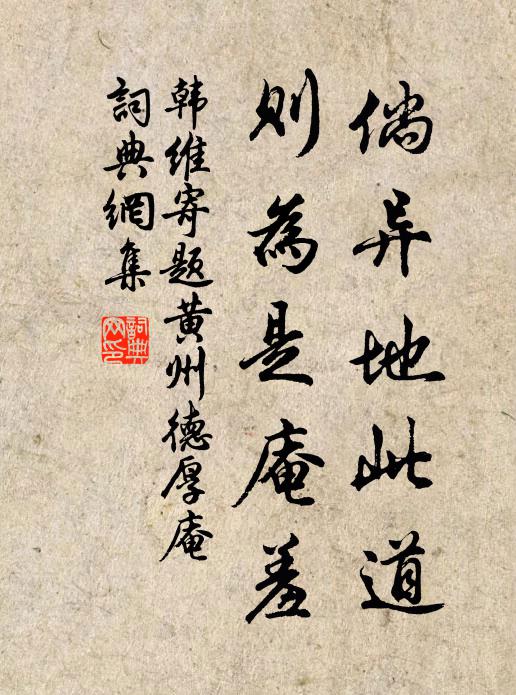 倘异地此道
则為是庵羞
韩维寄题黄州德厚庵
詞典網集
詞典网印